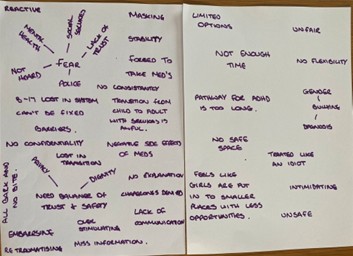 REACTIVE
MASKING
MENTAL
HEALTH
SOCIAL
SERVICES
LACK OF
TRUST
STABILITY
FEAR
NOT
HEARD
POLICE
FORCED TO
TAKE MED'S
NO CONSISTANTLY
8-17 LOST IN SYSTEM
CAN'T BE FIXED
BARRIERS.
TRANSITION FROM
CHILD TO ADULT
WITH SERVICES IS
AWFUL.
NO CONFIDENTIALITY
LOST IN
TRANSITION
NEGATIVE SIDE EFFECTS
OF MEDS
ALL BARK AND
NO BITE.
PRIVACY
DIGNITY
NO EXPLANATION
NEED BALANCE OF
TRUST & SAFETY
CHAPERONES DENIED
OVER
STIMULATING
LACK OF
COMMUNICATION
EMBARRISING
RE TRAUMATISING
MISS INFORMATION.
LIMITED
OPTIONS
UNFAIR
NOT ENOUGH
TIME
NO FLEXIBILITY
PATHWAY FOR ADHD
IS TOO LONG.
GENDER
BULLYING
DIAGNOSIS
NO SAFE
SPACE
TREATED LIKE
AN IDIOT
FEELS LIKE
GIRLS ARE PUT
IN TO SMALLER
PLACES WITH LESS
OPPORTUNITIES.
INTIMIDATING
UNSAFE